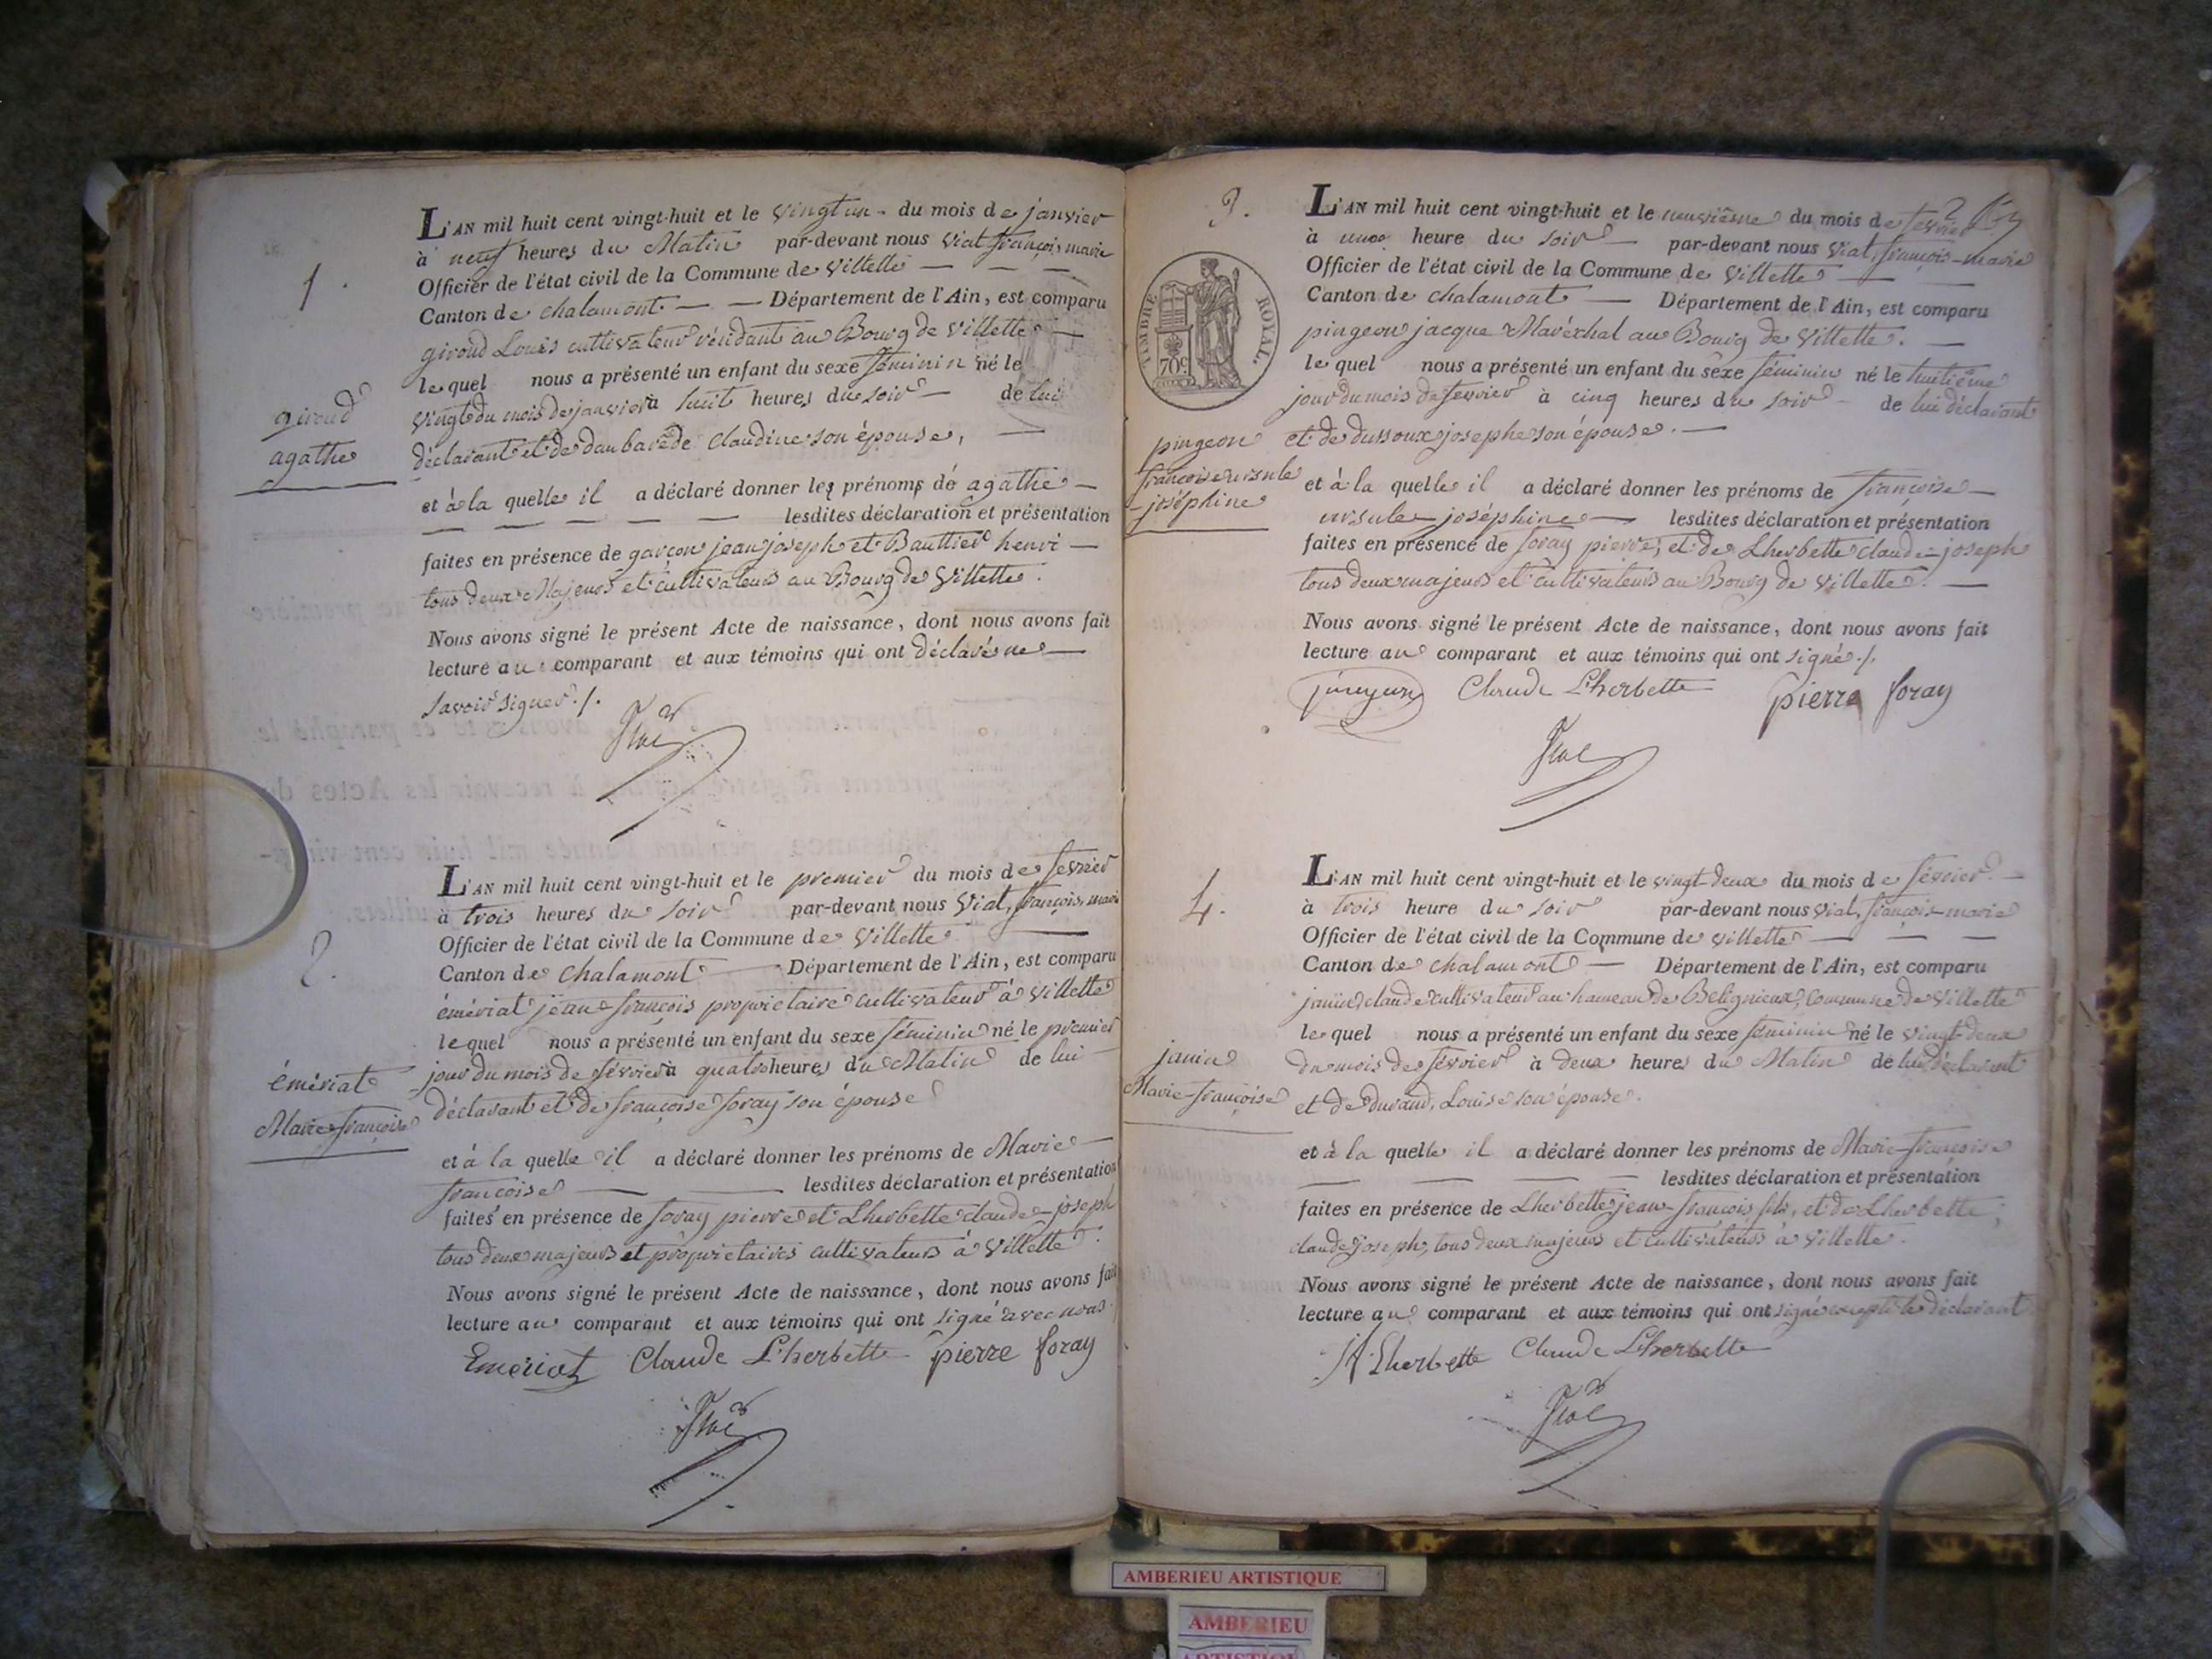 1.
giroud
agathe
L'AN mil huit cent vingt-huit et le vingt un - du mois de janvier
à neuf heures du Matin par-devant nous Vial françois marie
Officier de l'état civil de la Commune de Villette
Canton de chalamont Département de l'Ain, est comparu
giroud Louis cultivateur résidant au Bourg de Villette
lequel nous a présenté un enfant du sexe féminin né le
vingt du mois de janvier à huit heures du soir de lui
déclarant et de daubarède Claudine son épouse,
et à la quelle il a déclaré donner les prénoms de agathe
lesdites déclaration et présentation
faites en présence de garçon jean joseph et Bauttier henri
tous deux Majeurs et cultivateurs au Bourg de Villette.
Nous avons signé le présent Acte de naissance, dont nous avons fait
lecture au comparant et aux témoins qui ont déclaré ne
savoir signer ./.
Vial
2.
émériat
Marie françoise
L'AN mil huit cent vingt-huit et le premier du mois de fevrier
à trois heures du soir par-devant nous Vial, françois, marie
Officier de l'état civil de la Commune de Villette
Canton de chalamont Département de l'Ain, est comparu
émériat jean françois propriétaire cultivateur à Villette
lequel nous a présenté un enfant du sexe féminin né le premier
jour du mois de février à quatre heures du Matin de lui
déclarant et de françoise foray son épouse
et à la quelle il a déclaré donner les prénoms de Marie
françoise lesdites déclaration et présentation
faites en présence de foray pierre et Lherbette claude-joseph
tous deux majeurs et propriétaires cultivateurs à Villette.
Nous avons signé le présent Acte de naissance, dont nous avons fait
lecture au comparant et aux témoins qui ont signé avec nous.
Emeriat Claude L'herbette pierre foray
Vial
3.
TIMBRE ROYAL
70c
pingeon
françoise ursule
-joséphine
L'AN mil huit cent vingt-huit et le neuvième du mois de fevrier
à une heure du soir par-devant nous Vial, françois-marie
Officier de l'état civil de la Commune de Villette
Canton de chalamont Département de l'Ain, est comparu
pingeon jacque Maréchal au Bourg de Villette.
lequel nous a présenté un enfant du sexe féminin né le huitième
jour du mois de fevrier à cinq heures du soir de lui déclarant
et de dussoux josephe son épouse.
et à la quelle il a déclaré donner les prénoms de françoise
ursule joséphine lesdites déclaration et présentation
faites en présence de foray pierre, et de Lherbette claude-joseph
tous deux majeurs et cultivateurs au Bourg de Villette.
Nous avons signé le présent Acte de naissance, dont nous avons fait
lecture au comparant et aux témoins qui ont signé ./.
pingeon Claude L'herbette pierre foray
Vial
4.
janin
Marie-françoise
L'AN mil huit cent vingt-huit et le vingt deux du mois de février
à trois heure du soir par-devant nous Vial, françois-marie
Officier de l'état civil de la Commune de Villette
Canton de chalamont Département de l'Ain, est comparu
janin claude cultivateur au hameau de Belignieux, commune de Villette
lequel nous a présenté un enfant du sexe féminin né le vingt-deux
du mois de février à deux heures du Matin de lui déclarant
et de durand, Louise son épouse.
et à la quelle il a déclaré donner les prénoms de Marie-françoise
lesdites déclaration et présentation
faites en présence de Lherbette jean-françois fils, et de Lherbette,
claude joseph, tous deux majeurs et cultivateurs à Villette.
Nous avons signé le présent Acte de naissance, dont nous avons fait
lecture au comparant et aux témoins qui ont signé excepté le déclarant
Lherbette Claude L'herbette
Vial
AMBERIEU ARTISTIQUE
AMBERIEU
ARTISTIQUE